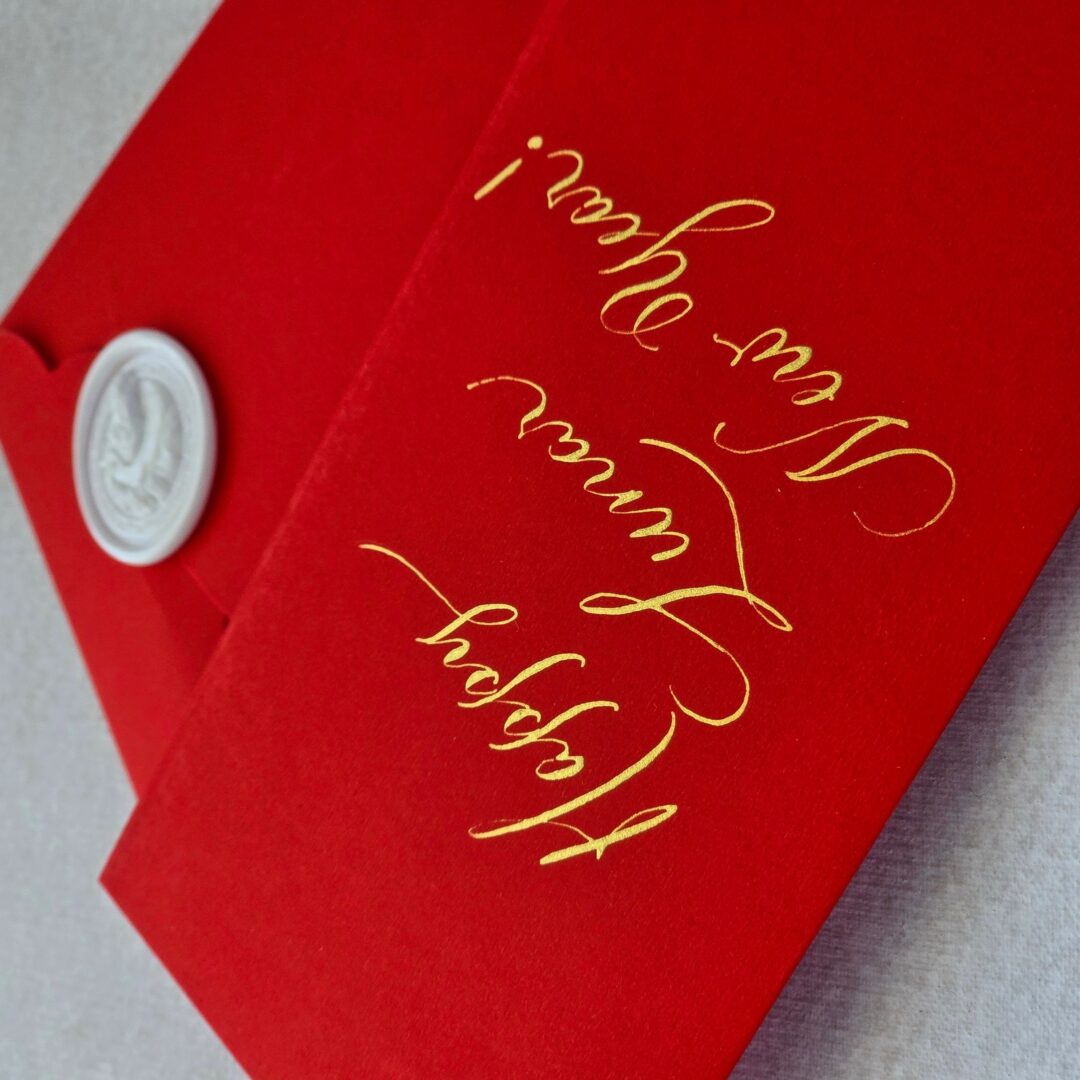 Happy
Lunar
New Year!